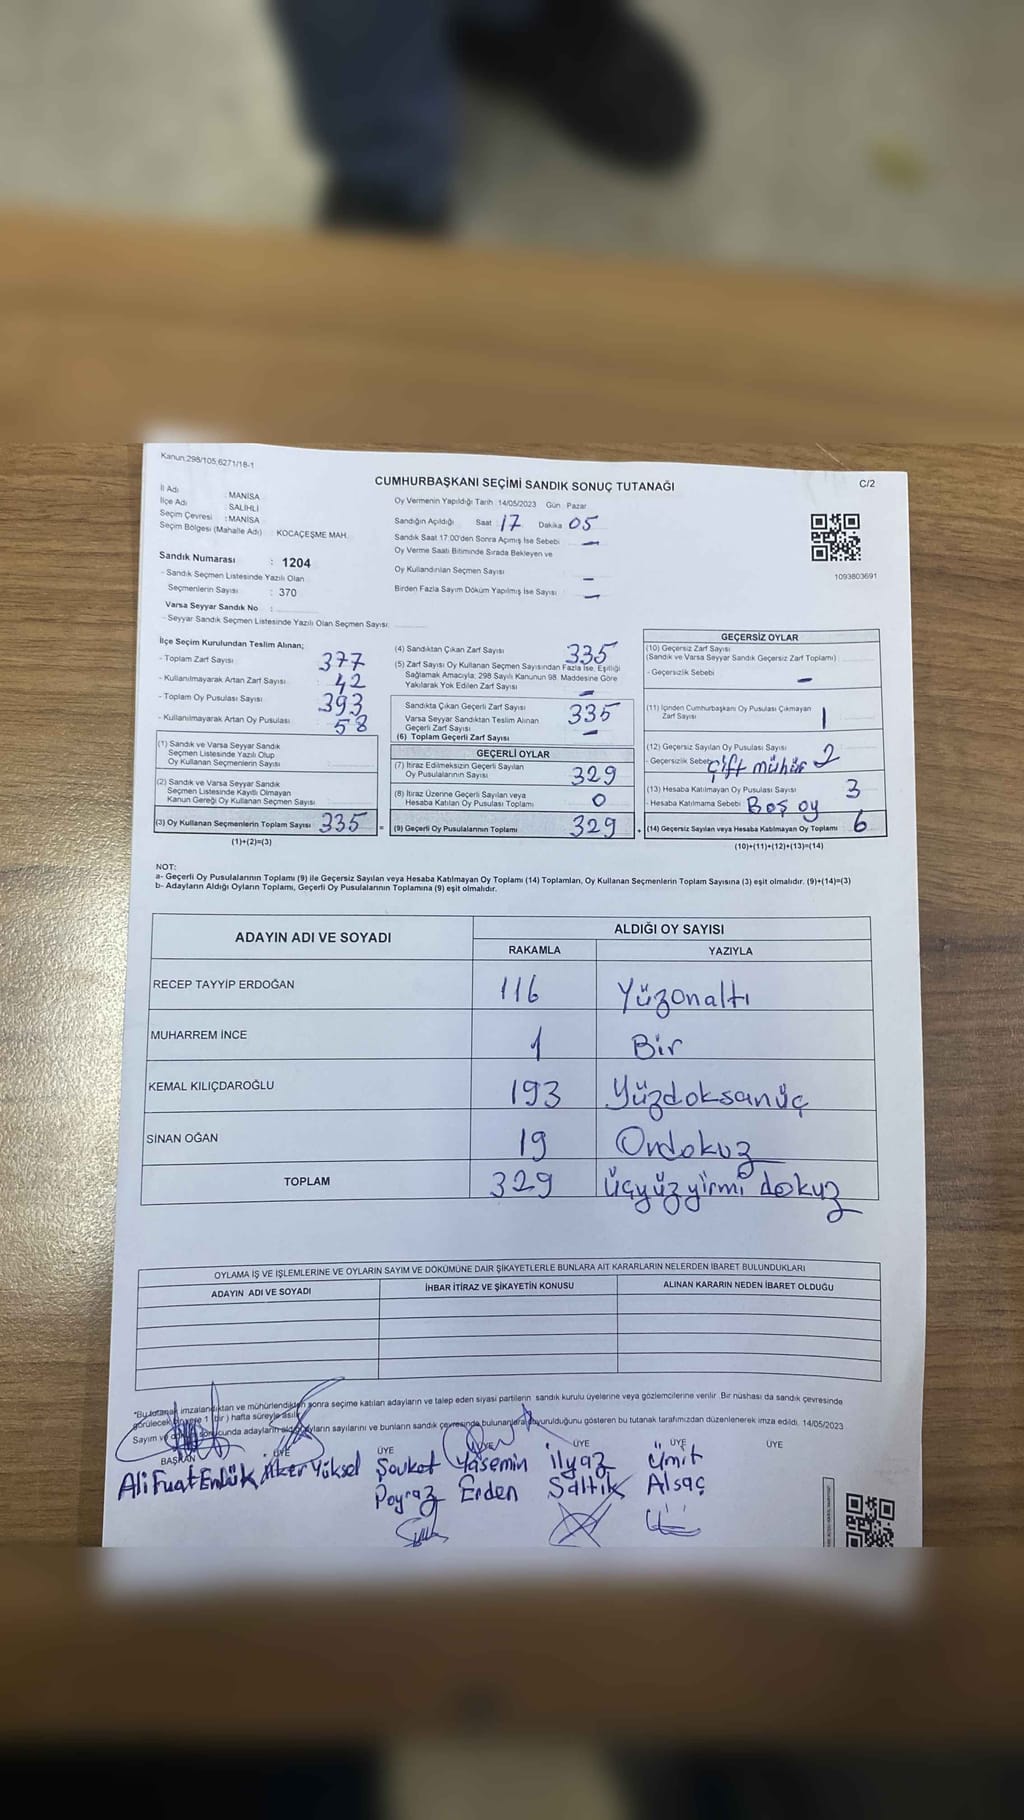 Kanun:298/105,6271/18-1
CUMHURBAŞKANI SEÇİMİ SANDIK SONUÇ TUTANAĞI
C/2
İl Adı : MANİSA
İlçe Adı : SALİHLİ
Seçim Çevresi : MANİSA
Seçim Bölgesi (Mahalle Adı) : KOCAÇEŞME MAH.
Sandık Numarası : 1204
- Sandık Seçmen Listesinde Yazılı Olan
Seçmenlerin Sayısı : 370
Varsa Seyyar Sandık No :
- Seyyar Sandık Seçmen Listesinde Yazılı Olan Seçmen Sayısı:
Oy Vermenin Yapıldığı Tarih :14/05/2023 Gün Pazar
Sandığın Açıldığı Saat 17 Dakika 05
Sandık Saat 17:00'den Sonra Açımış İse Sebebi —
Oy Verme Saati Bitiminde Sırada Bekleyen ve
Oy Kullandırılan Seçmen Sayısı —
Birden Fazla Sayım Döküm Yapılmış İse Sayısı —
1093803691
İlçe Seçim Kurulundan Teslim Alınan;
- Toplam Zarf Sayısı : 377
- Kullanılmayarak Artan Zarf Sayısı : 42
- Toplam Oy Pusulası Sayısı : 393
- Kullanılmayarak Artan Oy Pusulası : 58
(1) Sandık ve Varsa Seyyar Sandık
Seçmen Listesinde Yazılı Olup
Oy Kullanan Seçmenlerin Sayısı :
(2) Sandık ve Varsa Seyyar Sandık
Seçmen Listesinde Kayıtlı Olmayan
Kanun Gereği Oy Kullanan Seçmen Sayısı :
(3) Oy Kullanan Seçmenlerin Toplam Sayısı 335 =
(1)+(2)=(3)
(4) Sandıktan Çıkan Zarf Sayısı 335
(5) Zarf Sayısı Oy Kullanan Seçmen Sayısından Fazla İse, Eşitliği
Sağlamak Amacıyla; 298 Sayılı Kanunun 98. Maddesine Göre
Yakılarak Yok Edilen Zarf Sayısı —
Sandıkta Çıkan Geçerli Zarf Sayısı 335
Varsa Seyyar Sandıktan Teslim Alınan
Geçerli Zarf Sayısı —
(6) Toplam Geçerli Zarf Sayısı
GEÇERLİ OYLAR
(7) İtiraz Edilmeksizin Geçerli Sayılan
Oy Pusulalarının Sayısı 329
(8) İtiraz Üzerine Geçerli Sayılan veya
Hesaba Katılan Oy Pusulası Toplamı 0
(9) Geçerli Oy Pusulalarının Toplamı 329 +
GEÇERSİZ OYLAR
(10) Geçersiz Zarf Sayısı
(Sandık ve Varsa Seyyar Sandık Geçersiz Zarf Toplamı)
- Geçersizlik Sebebi —
(11) İçinden Cumhurbaşkanı Oy Pusulası Çıkmayan
Zarf Sayısı 1
(12) Geçersiz Sayılan Oy Pusulası Sayısı 2
- Geçersizlik Sebebi Çift mühür
(13) Hesaba Katılmayan Oy Pusulası Sayısı 3
- Hesaba Katılmama Sebebi Boş oy
(14) Geçersiz Sayılan veya Hesaba Katılmayan Oy Toplamı 6
(10)+(11)+(12)+(13)=(14)
NOT:
a- Geçerli Oy Pusulalarının Toplamı (9) ile Geçersiz Sayılan veya Hesaba Katılmayan Oy Toplamı (14) Toplamları, Oy Kullanan Seçmenlerin Toplam Sayısına (3) eşit olmalıdır. (9)+(14)=(3)
b- Adayların Aldığı Oyların Toplamı, Geçerli Oy Pusulalarının Toplamına (9) eşit olmalıdır.
ADAYIN ADI VE SOYADI
ALDIĞI OY SAYISI
RAKAMLA YAZIYLA
RECEP TAYYİP ERDOĞAN 116 Yüzonaltı
MUHARREM İNCE 1 Bir
KEMAL KILIÇDAROĞLU 193 Yüzdoksanüç
SİNAN OĞAN 19 Ondokuz
TOPLAM 329 üçyüzyirmi dokuz
OYLAMA İŞ VE İŞLEMLERİNE VE OYLARIN SAYIM VE DÖKÜMÜNE DAİR ŞİKAYETLERLE BUNLARA AİT KARARLARIN NELERDEN İBARET BULUNDUKLARI
ADAYIN ADI VE SOYADI İHBAR İTİRAZ VE ŞİKAYETİN KONUSU ALINAN KARARIN NEDEN İBARET OLDUĞU
"Bu tutanak imzalandıktan ve mühürlendikten sonra seçime katılan adayların ve talep eden siyasi partilerin sandık kurulu üyelerine veya gözlemcilerine verilir. Bir nüshası da sandık çevresinde
görülecek bir yere 1 (bir) hafta süreyle asılır.
Sayım ve sonucunda adayların aldığı oyların sayılarını ve bunların sandık çevresinde bulunanlara duyurulduğunu gösteren bu tutanak tarafımızdan düzenlenerek imza edildi. 14/05/2023
BAŞKAN ÜYE ÜYE ÜYE ÜYE ÜYE ÜYE
Ali Fuat Enlük İlker Yüksel Şevket Yasemin İlyaz Ümit
Poyraz Erden Saltik Alsaç